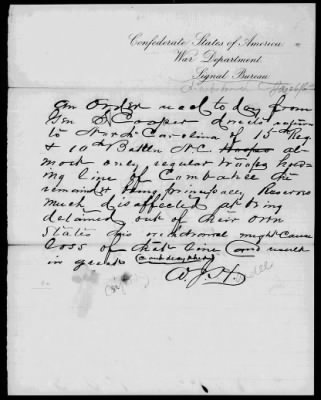 Confederate States of America
War Department
Signal Bureau
an order recd to day from
Gen S. Cooper directs return
to North Carolina of 15th Reg
& 10th Battn N.C. Troops al-
most only regular troops hold-
ing line of Combahee the
remaind being principally Reserves
much disaffected at being
detained out of their own
States this withdrawal might cause
loss of that line and result
in great
W. J. H.